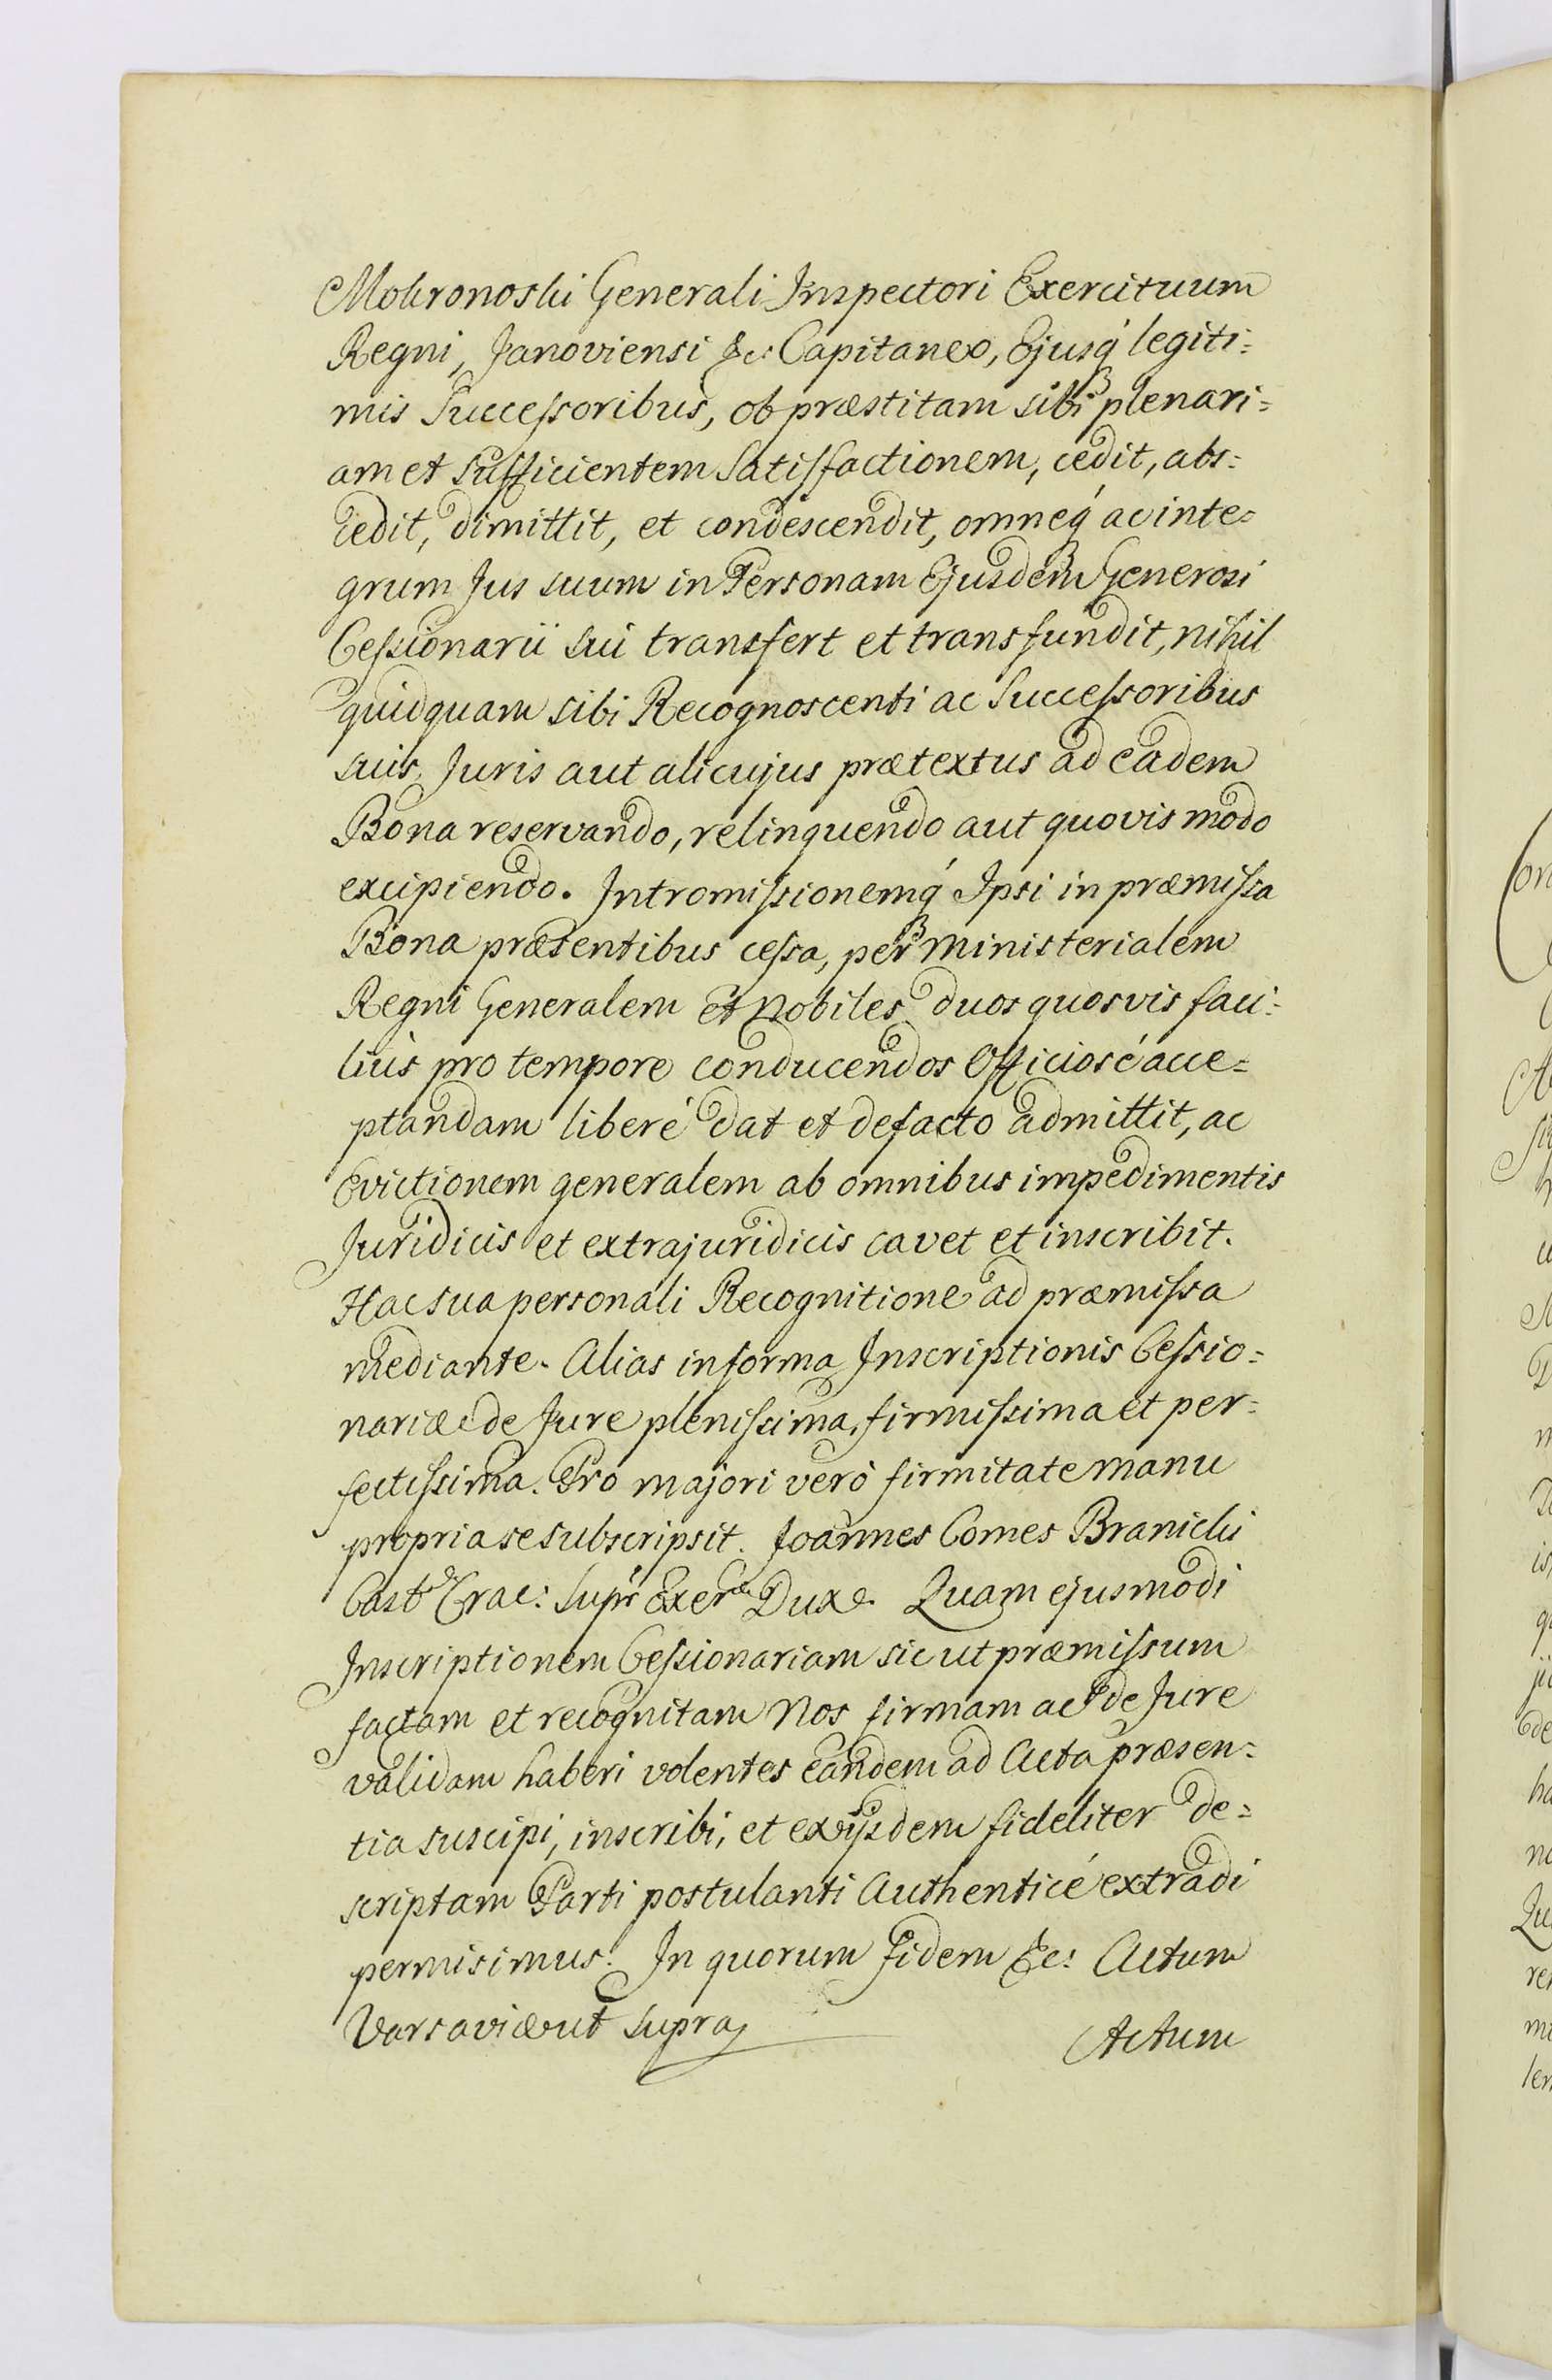 Mokronoski Generali Inspectori Exercituum
Regni, Janoviensi &c: Capitaneo, Ejusq́ legiti=
mis Succeſsoribus, ob præstitam sibi plenari=
am et Sufficientem Satisfactionem, cedit, abs=
cedit, dimittit, et condescendit, omneq́ ac inte=
grum Jus suum in Personam Ejusdem Generosi
Ceſsionarii sui transfert et transfundit, nihil
quidquam sibi Recognoscenti ac Succeſsoribus
suis, Juris aut alicujus prætextus ad eadem
Bona reservando, relinquendo aut quovis modo
excipiendo. Intromiſsionemq́ Ipsi in præmiſsa
Bona præsentibus ceſsa, per Ministerialem
Regni Generalem et Nobiles duos quosvis faci=
lius pro tempore conducendos Officiosé acce=
ptandam liberé dat et defacto admittit, ac
Evictionem generalem ab omnibus impedimentis
Juridicis et extrajuridicis cavet et inscribit.
Hac sua personali Recognitione ad præmiſsa
mediante. Alias in forma Inscriptionis Ceſsio=
nariæ de Jure pleniſsima, firmiſsima et per=
fectiſsima. Pro majori veró firmitate manu
propria se subscripsit. Joannes Comes Branicki
Cast. Crac: Supr Exer Dux. Quam ejusmodi
Inscriptionem Ceſsionariam sic ut præmiſsum
factam et recognitam Nos firmam ac de Jure
validam haberi volentes eandem ad Acta præsen=
tia suscipi, inscribi, et ex ijsdem fideliter de=
scriptam Parti postulanti Authenticé extradi
permisimus. In quorum Fidem &c: Actum
Varsaviæ ut supra
Actum